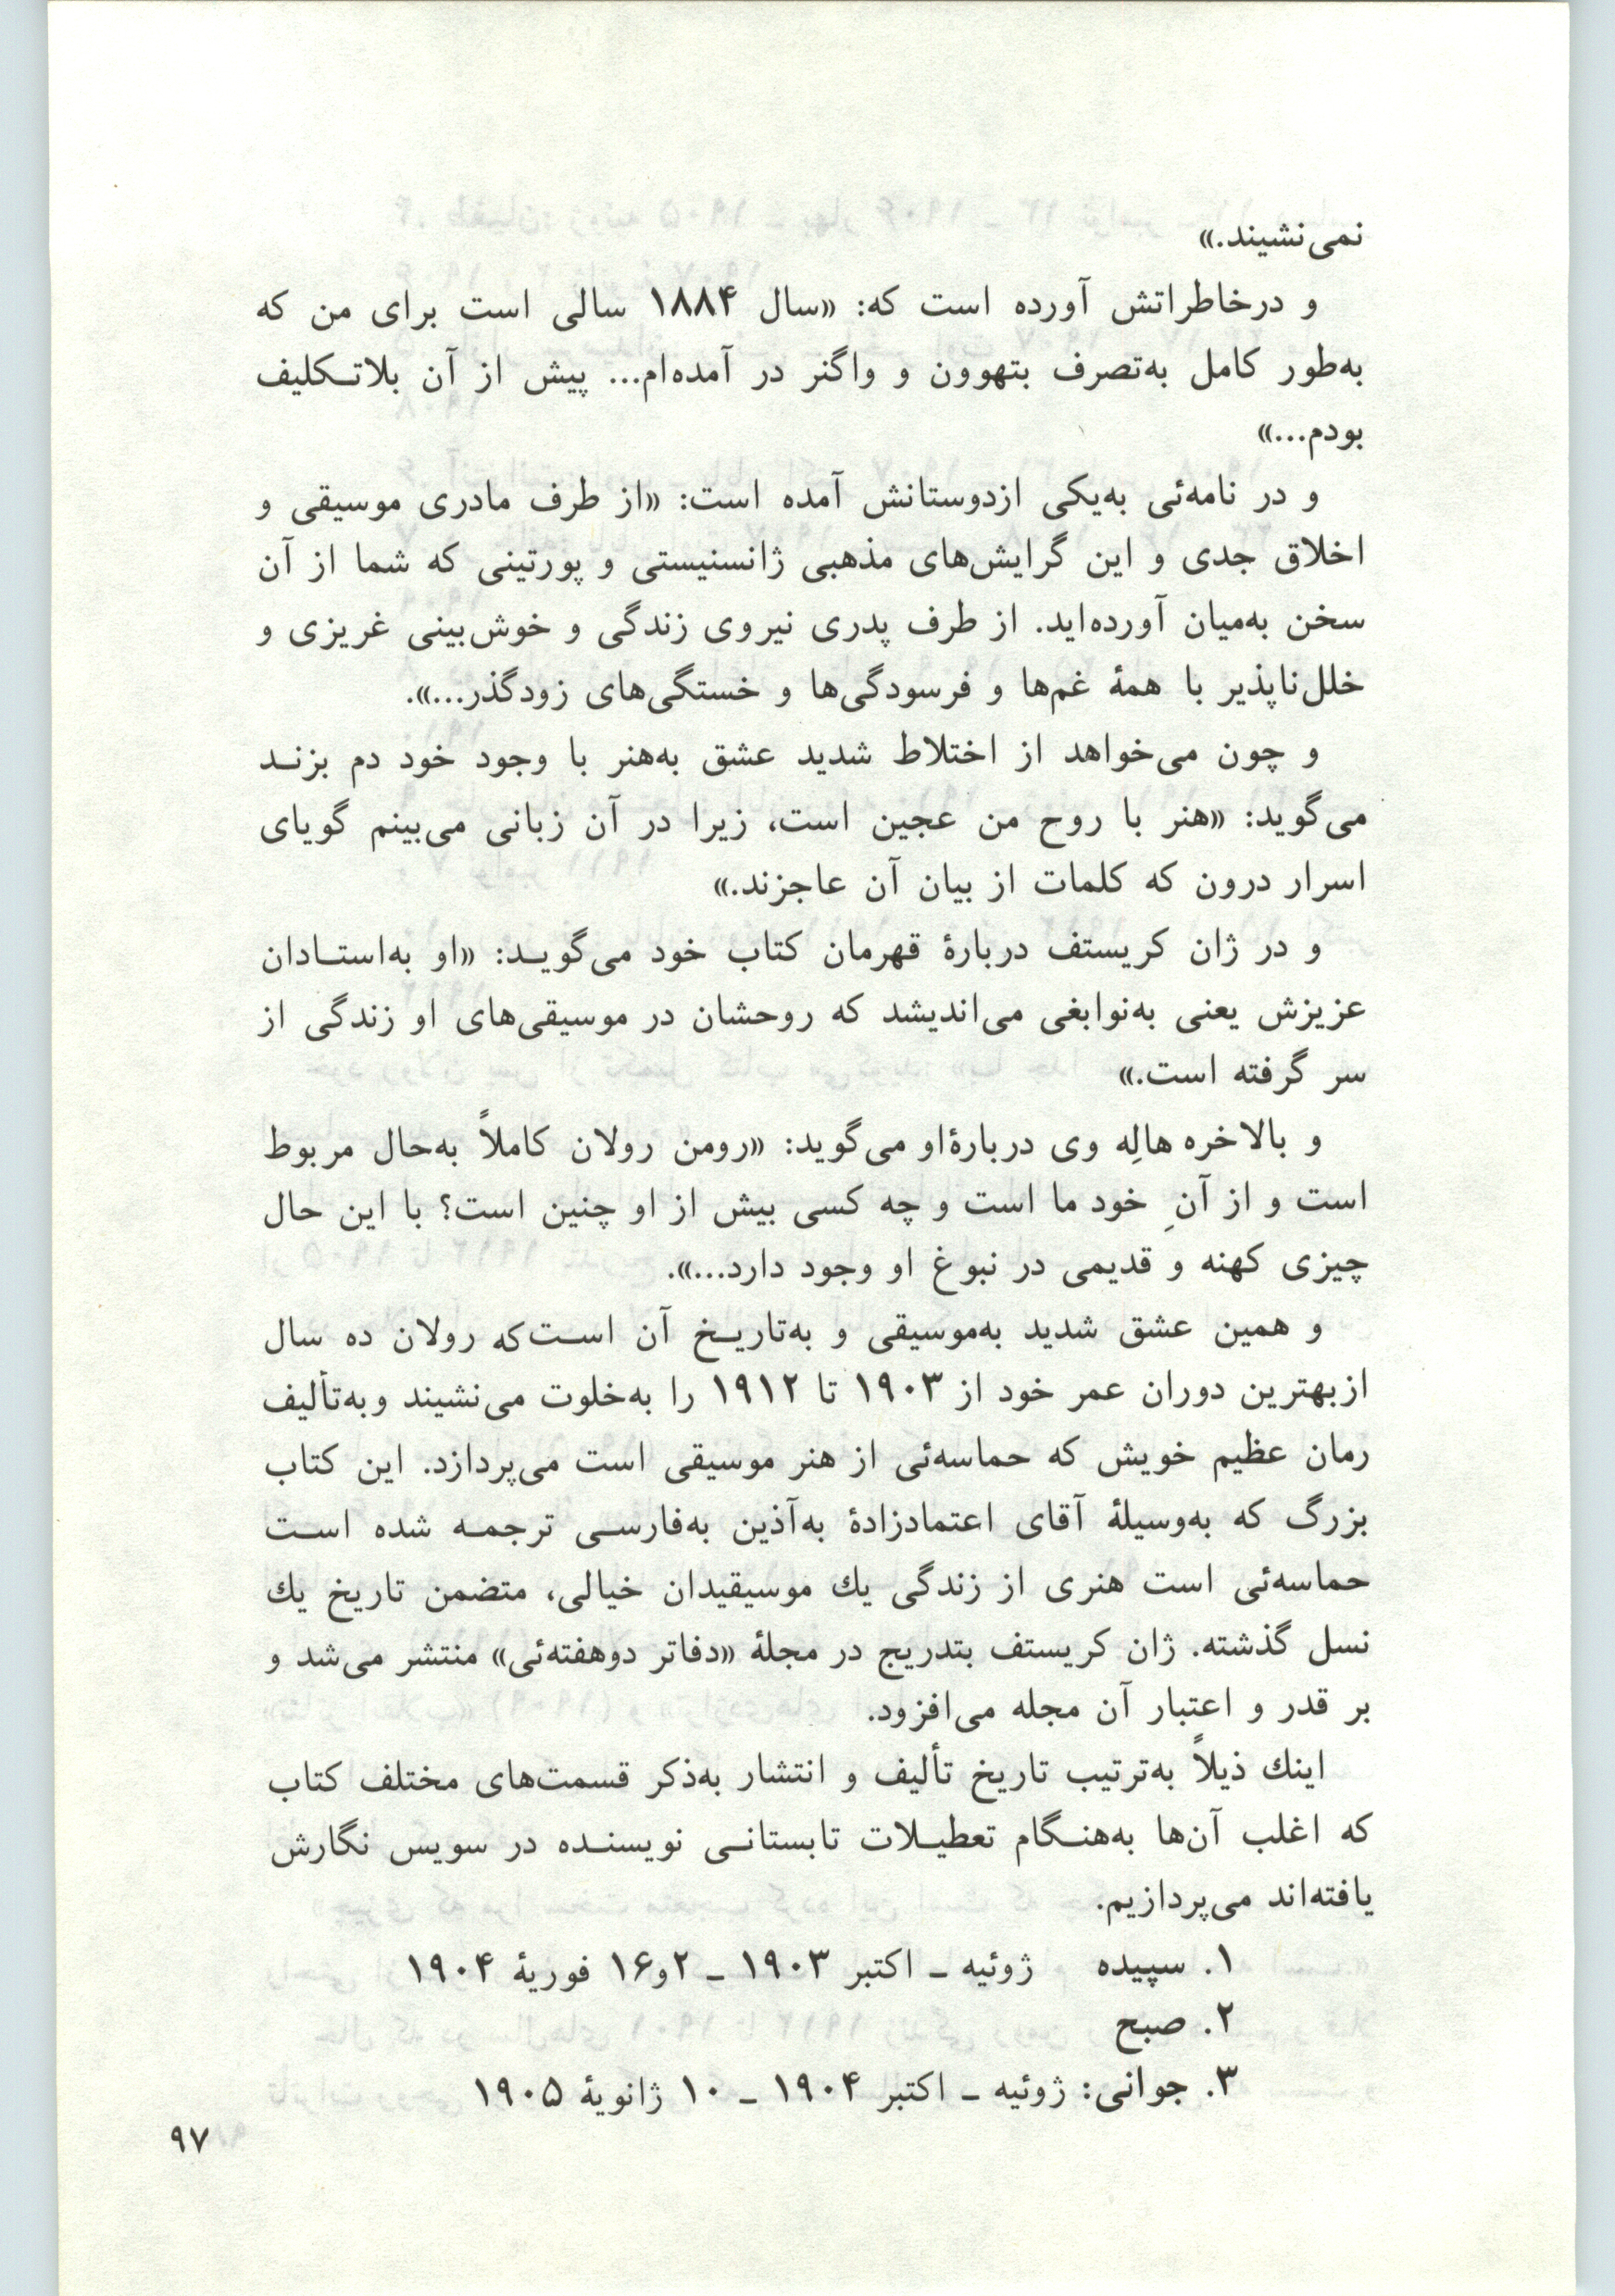 نمی‌نشیند.»
و درخاطراتش آورده است که: «سال ۱۸۸۴ سالی است برای من که
به‌طور کامل به‌تصرف بتهوون و واگنر در آمده‌ام... پیش از آن بلاتـکلیف
بودم...»
و در نامه‌ئی به‌یکی ازدوستانش آمده است: «از طرف مادری موسیقی و
اخلاق جدی و این گرایش‌های مذهبی ژانسنیستی و پورتینی که شما از آن
سخن به‌میان آورده‌اید. از طرف پدری نیروی زندگی و خوش‌بینی غریزی و
خلل‌ناپذیر با همهٔ غم‌ها و فرسودگی‌ها و خستگی‌های زودگذر...».
و چون می‌خواهد از اختلاط شدید عشق به‌هنر با وجود خود دم بزنـد
می‌گوید: «هنر با روح من عجین است، زیرا در آن زبانی می‌بینم گویای
اسرار درون که کلمات از بیان آن عاجزند.»
و در ژان کریستف دربارهٔ قهرمان کتاب خود می‌گویـد: «او به‌استـادان
عزیزش یعنی به‌نوابغی می‌اندیشد که روحشان در موسیقی‌های او زندگی از
سر گرفته است.»
و بالاخره هالِه وی دربارهٔ‌او می‌گوید: «رومن رولان کاملاً به‌حال مربوط
است و از آنِ خود ما است و چه کسی بیش از او چنین است؟ با این حال
چیزی کهنه و قدیمی در نبوغ او وجود دارد...».
و همین عشق شدید به‌موسیقی و به‌تاریـخ آن اسـت‌که رولان ده سال
ازبهترین دوران عمر خود از ۱۹۰۳ تا ۱۹۱۲ را به‌خلوت می‌نشیند وبه‌تألیف
رمان عظیم خویش که حماسه‌ئی از هنر موسیقی است می‌پردازد. این کتاب
بزرگ که به‌وسیلهٔ آقای اعتمادزادهٔ به‌آذین به‌فارسـی ترجمـه شده اسـت
حماسه‌ئی است هنری از زندگی یك موسیقیدان خیالی، متضمن تاریخ یك
نسل گذشته. ژان کریستف بتدریج در مجلهٔ «دفاتر دوهفته‌ئی» منتشر می‌شد و
بر قدر و اعتبار آن مجله می‌افزود.
اینك ذیلاً به‌ترتیب تاریخ تألیف و انتشار به‌ذکر قسمت‌های مختلف کتاب
که اغلب آن‌ها به‌هنـگام تعطیـلات تابستانـی نویسنـده در سویس نگارش
یافته‌اند می‌پردازیم.
۱. سپیده ژوئیه ـ اکتبر ۱۹۰۳ ـ ۲و۱۶ فوریهٔ ۱۹۰۴
۲. صبح
۳. جوانی: ژوئیه ـ اکتبر ۱۹۰۴ ـ ۱۰ ژانویهٔ ۱۹۰۵
۹۷